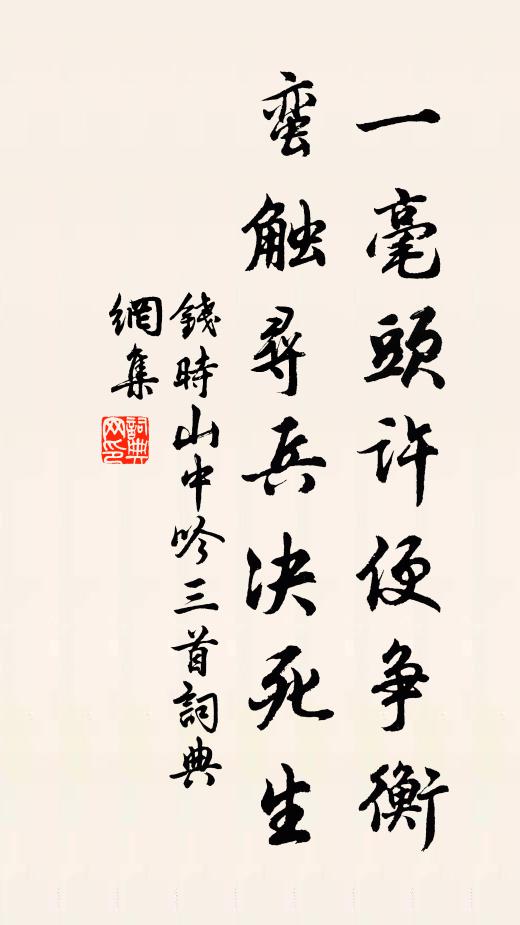 一毫頭許便争衡
蛮触尋兵决死生
錢時山中吟三首詞典
網集
詞典网印